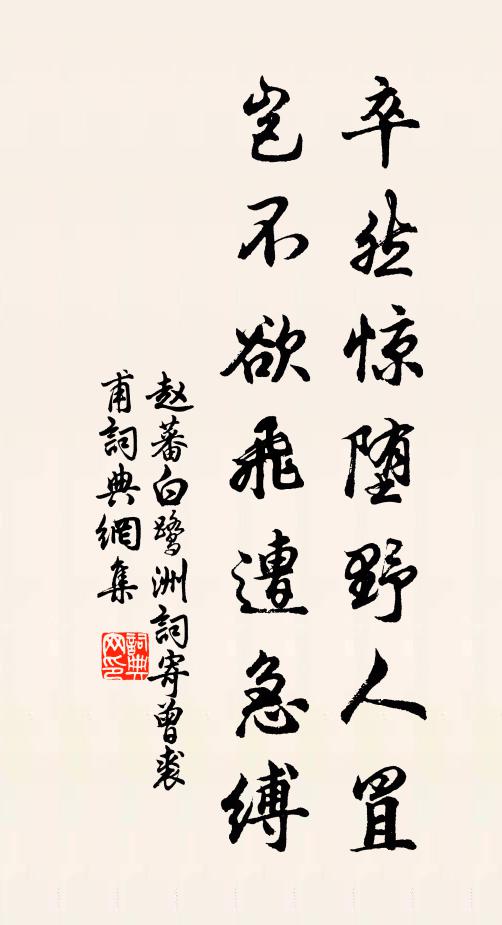 卒然惊堕野人罝
岂不欲飛遭急縛
赵蕃白鹭洲詞寄曾裘
甫詞典網集
詞典网印